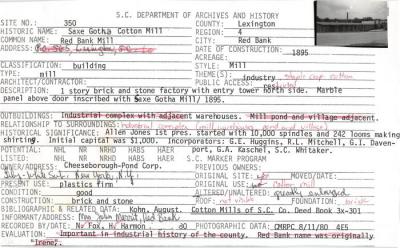 S.C. DEPARTMENT OF ARCHIVES AND HISTORY
SITE NO.: 350 COUNTY: Lexington
HISTORIC NAME: Saxe Gotha Cotton Mill REGION: 4
COMMON NAME: Red Bank Mill CITY: Red Bank
ADDRESS: DATE OF CONSTRUCTION: 1895
ACREAGE:
CLASSIFICATION: building STYLE: Mill
TYPE: mill THEME(S): industry
ARCHITECT/CONTRACTOR: PUBLIC ACCESS:
DESCRIPTION: 1 story brick and stone factory with entry tower north side. Marble
panel above door inscribed with Saxe Gotha Mill/ 1895.
OUTBUILDINGS: Industrial complex with adjacent warehouses. Mill pond and village adjacent.
RELATIONSHIP TO SURROUNDINGS: industrial complex (mill warehouses pond and village)
HISTORICAL SIGNIFICANCE: Allen Jones 1st pres. started with 10,000 spindles and 242 looms making
shirting. Initial capital was $1,000. Incorporators: G.E. Huggins, R.L. Mitchell, G.I. Daven-
POTENTIAL: NHL NR NRHD HABS HAER port, G.A. Kaschel, S.C. Whitaker.
LISTED: NHL NR NRHD HABS HAER S.C. MARKER PROGRAM
OWNER/ADDRESS: Cheeseborough-Pond Corp. PREVIOUS OWNERS:
New York, N.Y. ORIGINAL SITE: not MOVED/DATE:
PRESENT USE: plastics firm ORIGINAL USE: cotton mill
CONDITION: good ALTERED/UNALTERED: greatly enlarged
CONSTRUCTION: brick and stone ROOF: not visible FOUNDATION: brick
BIBLIOGRAPHY & RELATED DATA: Kohn, August. Cotton Mills of S.C. Co. Deed Book 3x-301
INFORMANT/ADDRESS: Mrs John Red Bank
RECORDED BY/DATE: N. Fox, H. Harmon 80 PHOTOGRAPHIC DATA: CMRPC 8/11/80 4E5
EVALUATION: Important in industrial history of the county. Red Bank name was originally
"Irene".